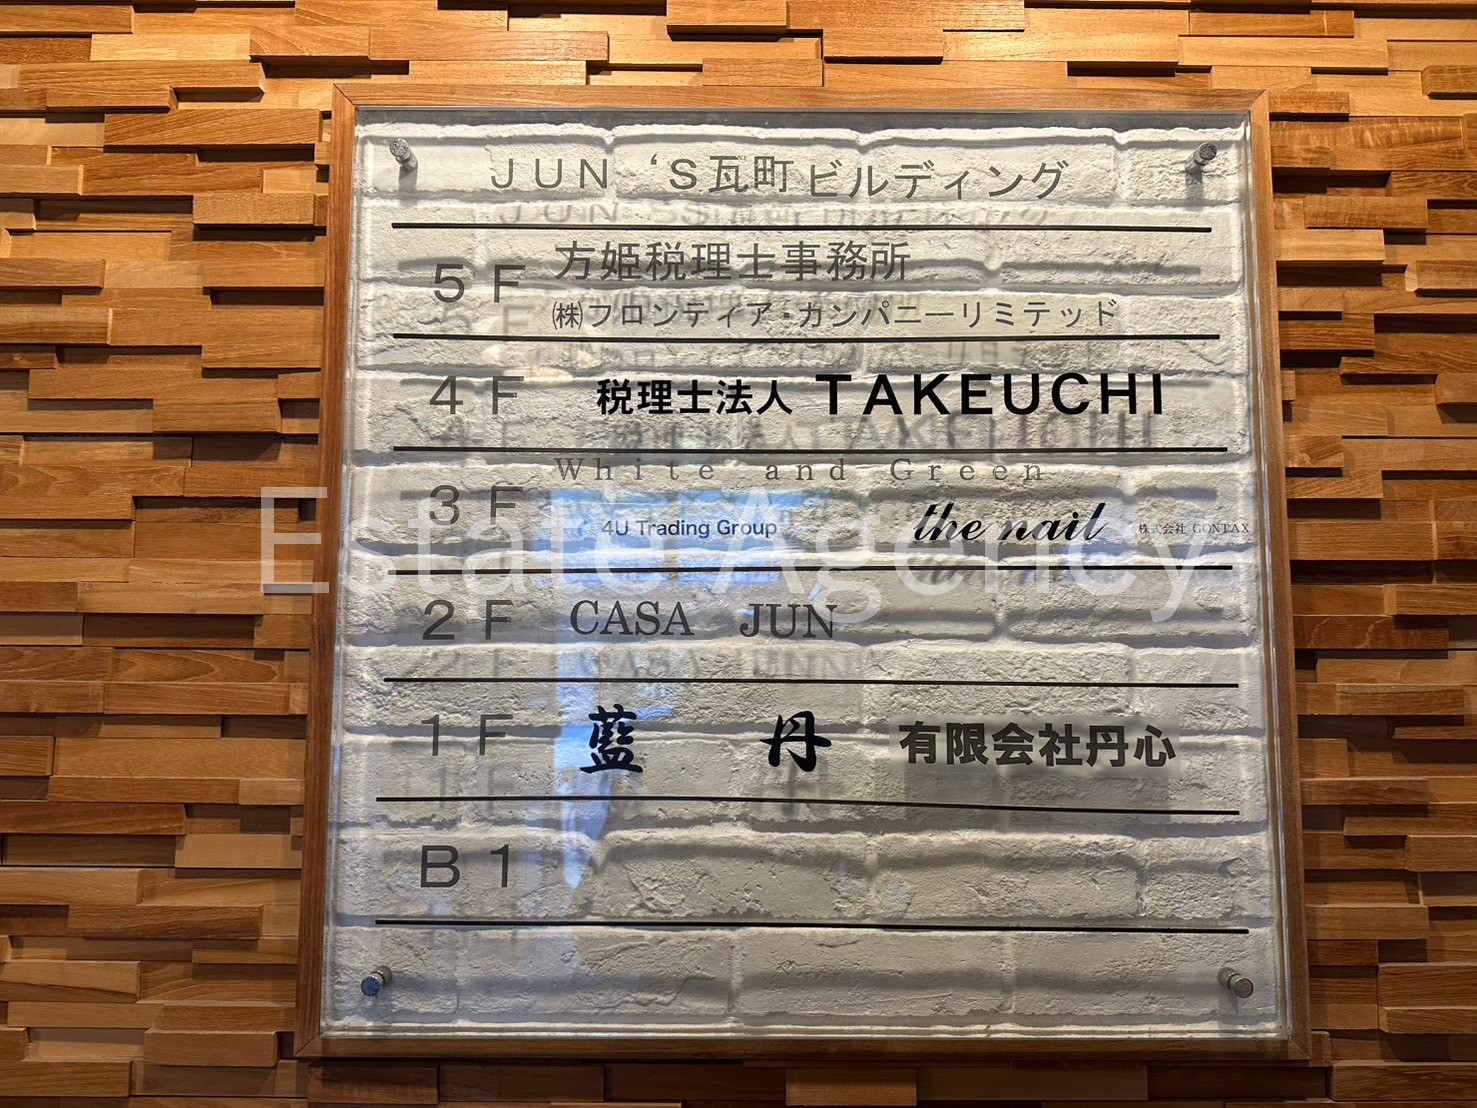 JUN 'S瓦町ビルディング
5F 方姫税理士事務所
㈱フロンティア・カンパニーリミテッド
4F 税理士法人 TAKEUCHI
White and Green
3F 4U Trading Group the nail 株式会社 GONTAX
Estate Agency
2F CASA JUN
1F 藍 丹 有限会社丹心
B1